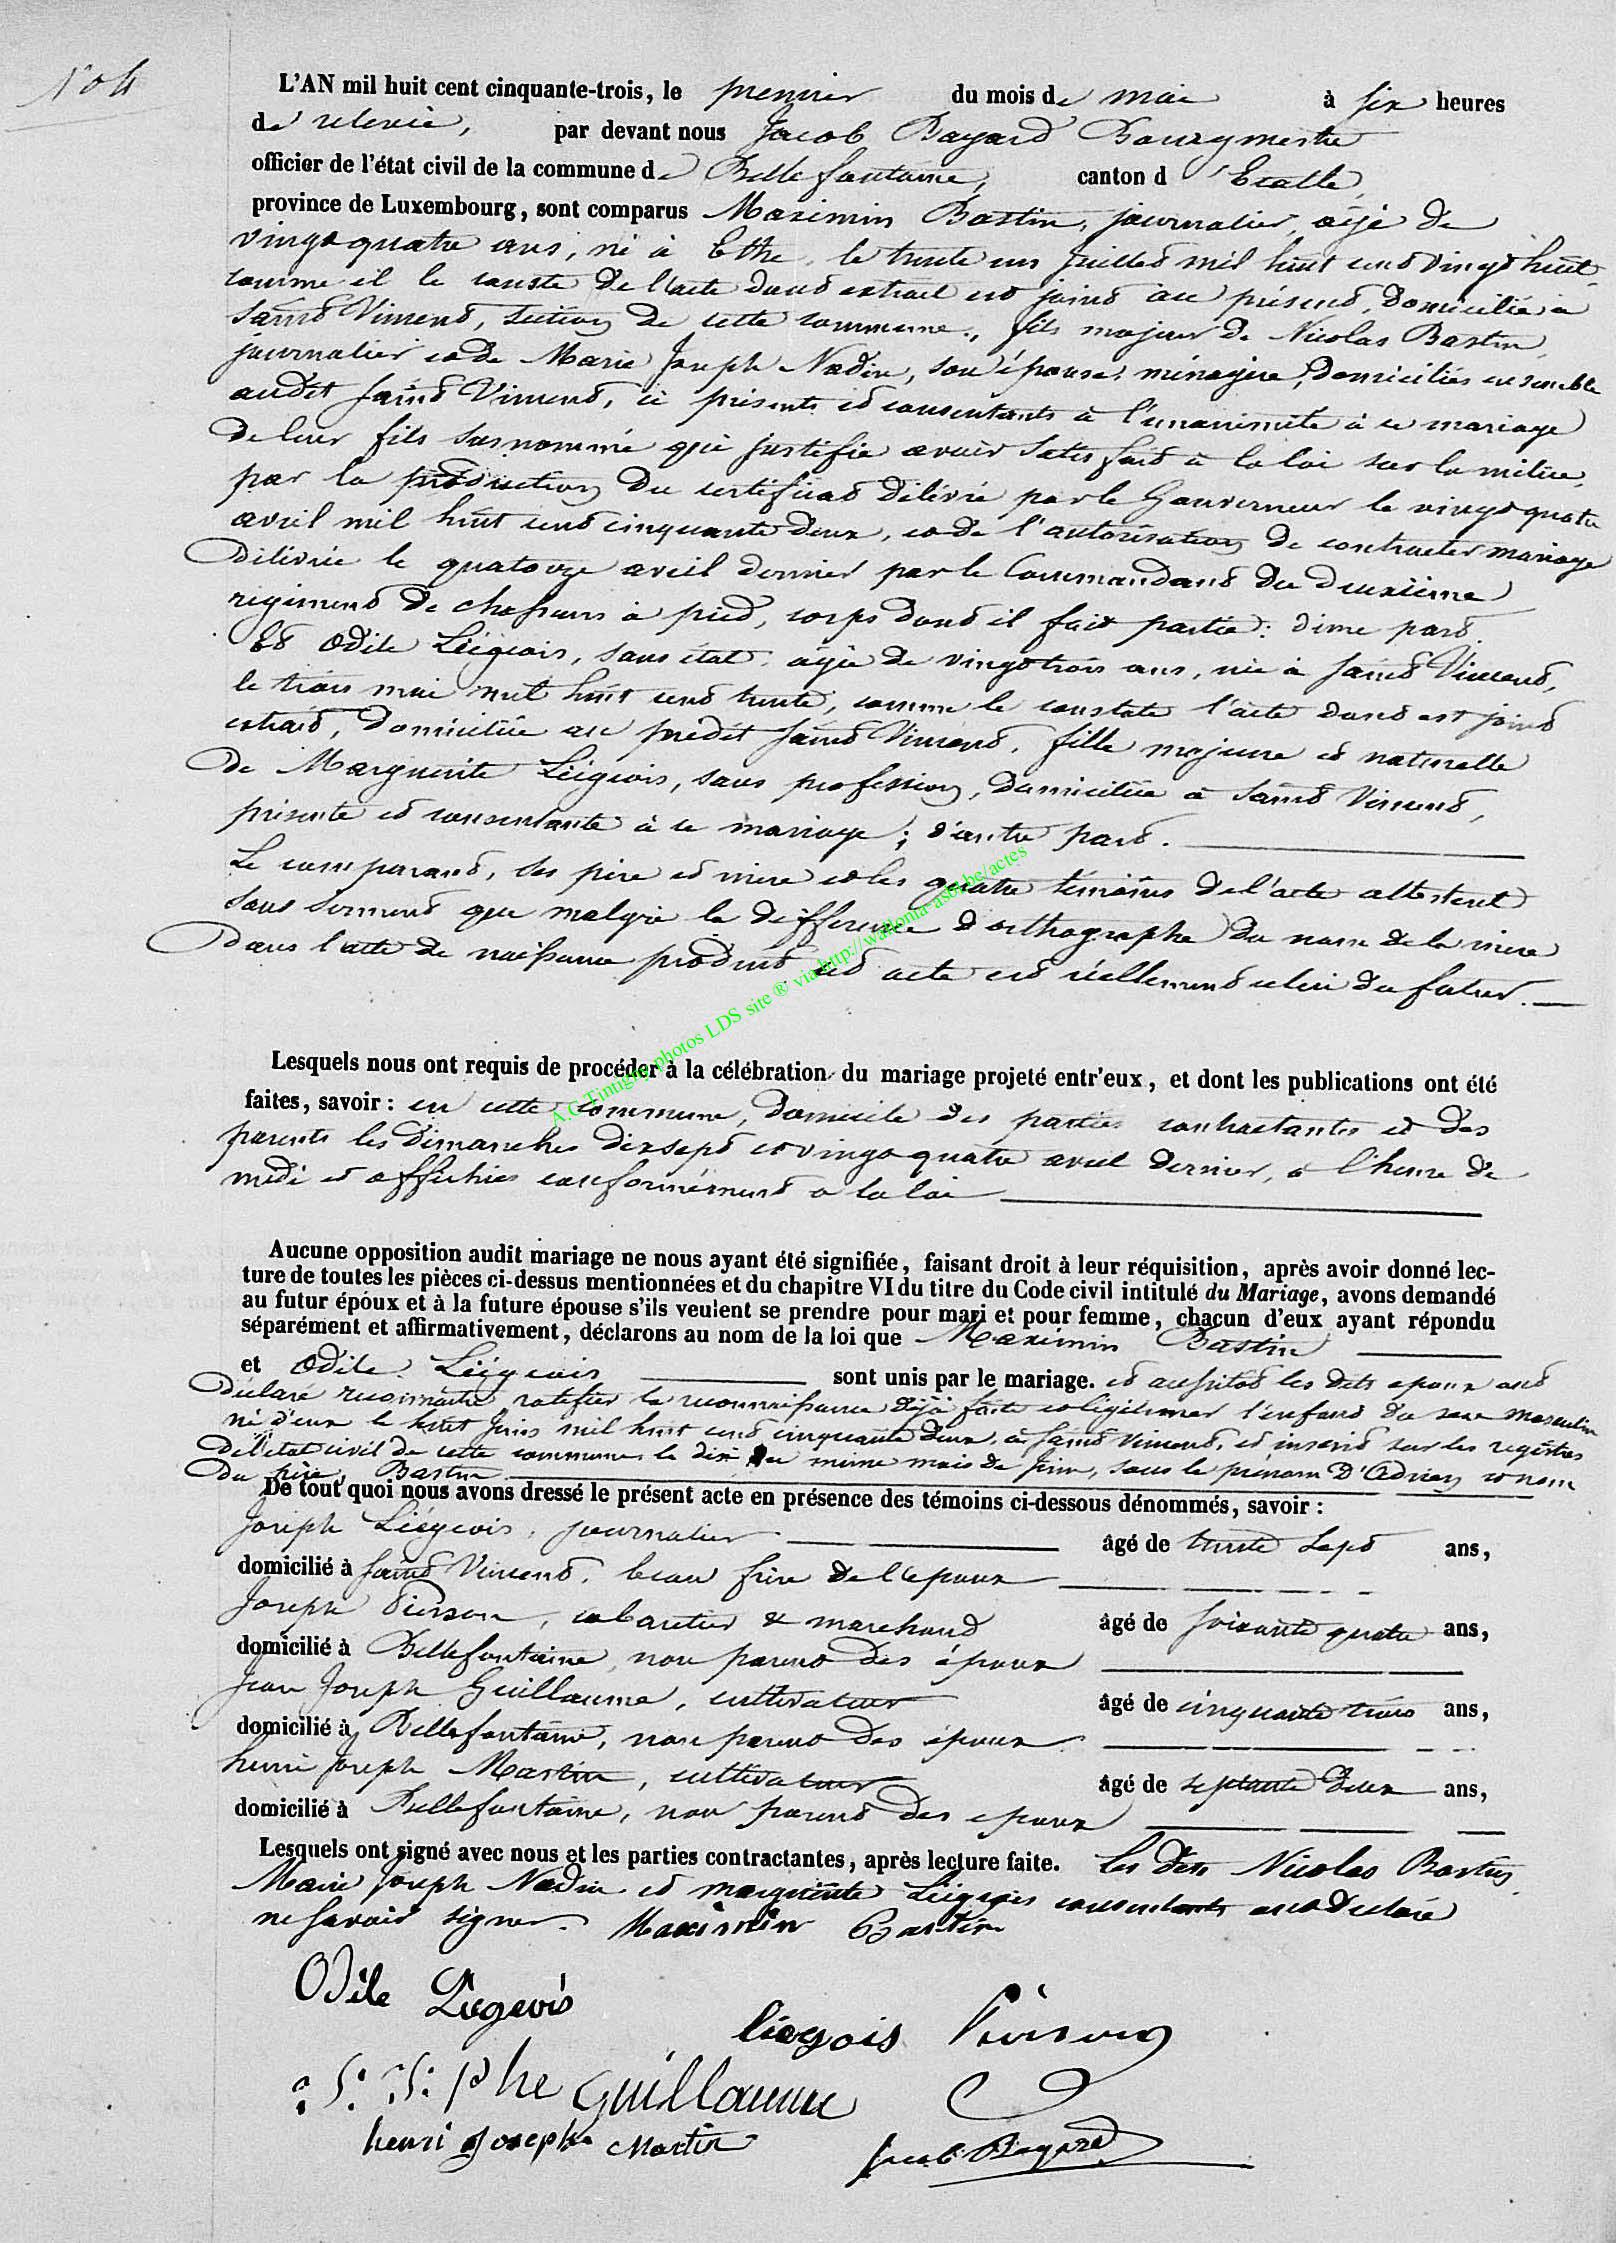 N° 4
L'AN mil huit cent cinquante-trois, le premier du mois de mai à six heures
de relevée, par devant nous Jacob Bayard Bourgmestre
officier de l'état civil de la commune de Bellefontaine, canton d'Etalle,
province de Luxembourg, sont comparus Maximin Bastin, journalier, âgé de
vingt quatre ans, né à Ethe, le trente un juillet mil huit cent vingt huit
comme il le conste de l'acte dont extrait est joint au présent, domicilié à
Saint Vincent, section de cette commune, fils majeur de Nicolas Bastin,
journalier et de Marie Joseph Nadin, son épouse, ménagère, domiciliés ensemble
audit Saint Vincent, ici présents et consentants à l'unanimité à ce mariage
de leur fils susnommé qui justifie avoir satisfait à la loi sur la milice,
par la production du certificat délivré par le Gouverneur le vingt quatre
avril mil huit cent cinquante deux, et de l'autorisation de contracter mariage
délivrée le quatorze avril dernier par le Commandant du deuxième
régiment de chasseurs à pied, corps dont il fait partie : d'une part.
Et Odile Liégeois, sans état, âgée de vingt trois ans, née à Saint Vincent,
le trois mai mil huit cent trente, comme le constate l'acte dont est joint
extrait, domiciliée au predit Saint Vincent, fille majeure et naturelle
de Marguerite Liégeois, sans profession, domiciliée à Saint Vincent,
présente et consentante à ce mariage ; d'autre part.
Le comparant, ses père et mère et les quatre témoins de l'acte attestent
sous serment que malgré la différence d'orthographe du nom de la mère
dans l'acte de naissance produit, cet acte est réellement celui du futur.
A.G. Tintigny photos LDS site ® via http://wallonia-asbl.be/actes
Lesquels nous ont requis de procéder à la célébration du mariage projeté entr'eux, et dont les publications ont été
faites, savoir : en cette commune, domicile des parties contractantes et des
parents les dimanches dix sept et vingt quatre avril dernier, à l'heure de
midi et affichées conformément à la loi
Aucune opposition audit mariage ne nous ayant été signifiée, faisant droit à leur réquisition, après avoir donné lec-
ture de toutes les pièces ci-dessus mentionnées et du chapitre VI du titre du Code civil intitulé du Mariage, avons demandé
au futur époux et à la future épouse s'ils veulent se prendre pour mari et pour femme, chacun d'eux ayant répondu
séparément et affirmativement, déclarons au nom de la loi que Maximin Bastin
et Odile Liégeois sont unis par le mariage. et aussitot les dits epoux ont
déclaré reconnaitre, ratifier la reconnaissance déjà faite et légitimer l'enfant du sexe masculin
né d'eux le huit juin mil huit cent cinquante deux, à Saint Vincent, et inscrit sur les registres
de l'état civil de cette commune le dix du même mois de juin, sous le prénom d'Adrien et nom
du père, Bastin
De tout quoi nous avons dressé le présent acte en présence des témoins ci-dessous dénommés, savoir :
Joseph Liégeois, journalier âgé de trente sept ans,
domicilié à Saint Vincent, beau frère de l'epoux
Joseph Pierson, cabaretier & marchand âgé de soixante quatre ans,
domicilié à Bellefontaine, non parent des époux
Jean Joseph Guillaume, cultivateur âgé de cinquante trois ans,
domicilié à Bellefontaine, non parent des époux
henri Joseph Martin, cultivateur âgé de septante deux ans,
domicilié à Bellefontaine, non parent des epoux
Lesquels ont signé avec nous et les parties contractantes, après lecture faite. Les dits Nicolas Bastin,
Marie Joseph Nadin et marguerite Liégeois consentants ont déclaré
ne savoir signer. Maximin Bastin
Odile Liegeois
liegois Pierson
J. J. phe Guillaume
henri Joseph Martin Jacob Bayard